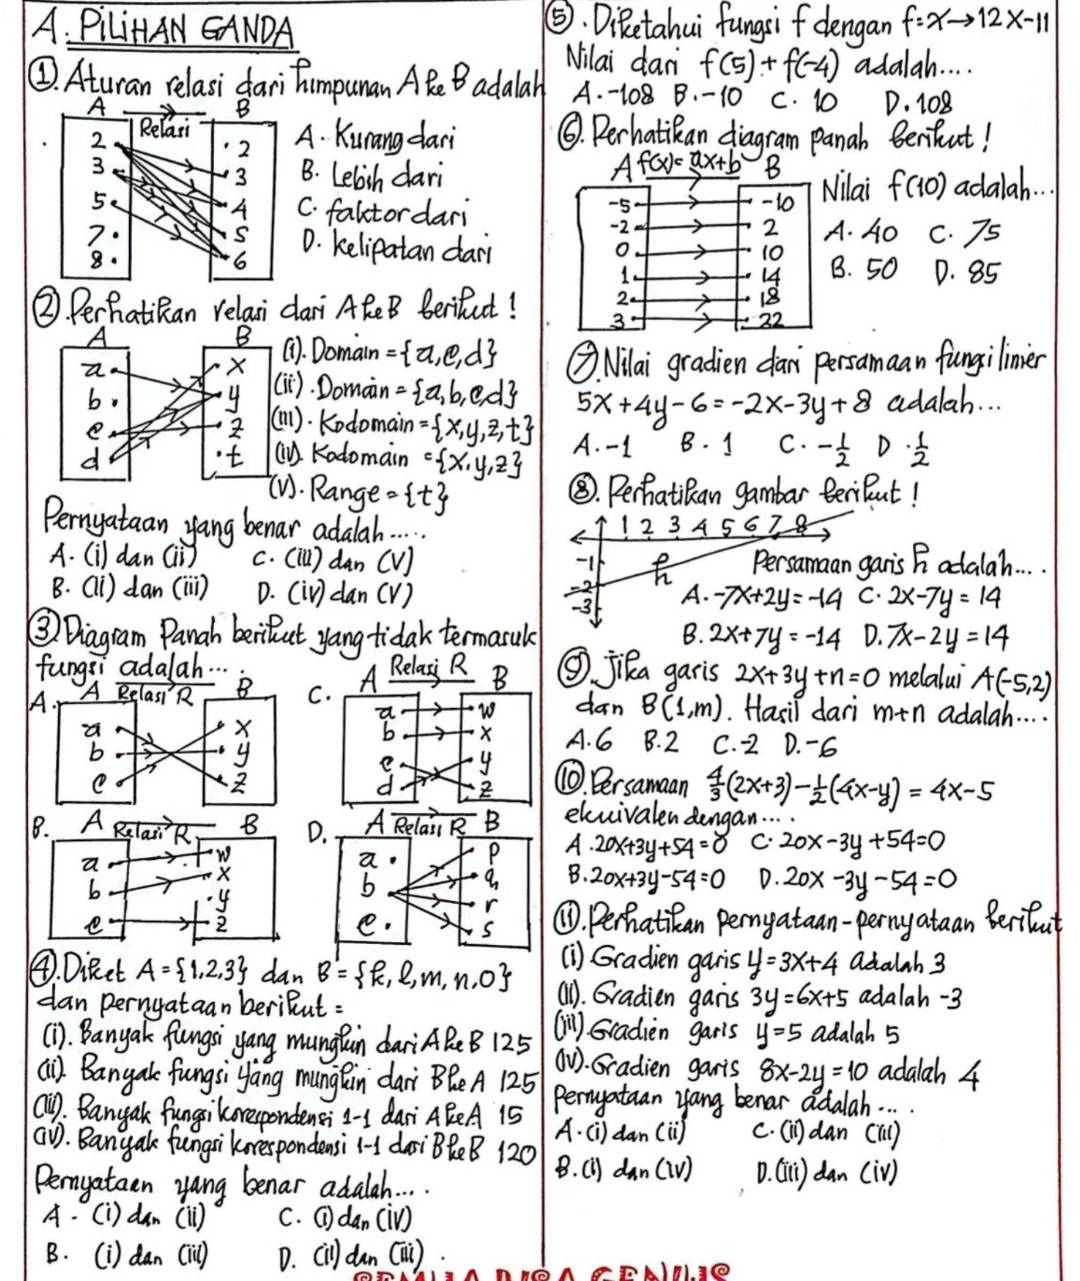 A. PILIHAN GANDA
①. Aturan relasi dari himpunan A ke B adalah
A B
Relasi
2 3 5 7 8
2 3 4 5 6
A. Kurang dari
B. Lebih dari
C. faktor dari
D. kelipatan dari
②. Perhatikan relasi dari A ke B berikut!
A B
a b c d
x y z t
(i). Domain = {a,c,d}
(ii). Domain = {a,b,c,d}
(iii). Kodomain = {x,y,z,t}
(iv). Kodomain = {x,y,z}
(v). Range = {t}
Pernyataan yang benar adalah.....
A. (i) dan (ii) C. (iii) dan (v)
B. (ii) dan (iii) D. (iv) dan (v)
③ Diagram Panah berikut yang tidak termasuk
fungsi adalah....
A. A Relasi R B
a b c
x y z
C. A Relasi R B
a b c d
w x y z
B. A Relasi R B
a b c
w x y z
D. A Relasi R B
a b c
p q r s
④. Diket A = {1,2,3} dan B = {k,l,m,n,o}
dan pernyataan berikut =
(i). Banyak fungsi yang mungkin dari A ke B 125
(ii). Banyak fungsi yang mungkin dari B ke A 125
(iii). Banyak fungsi korespondensi 1-1 dari A ke A 15
(iv). Banyak fungsi korespondensi 1-1 dari B ke B 120
Pernyataan yang benar adalah....
A. (i) dan (ii) C. (i) dan (iv)
B. (i) dan (iii) D. (ii) dan (iii)
⑤. Diketahui fungsi f dengan f=x→12x-11
Nilai dari f(5) + f(-4) adalah....
A. -108 B. -10 C. 10 D. 108
⑥. Perhatikan diagram panah berikut!
A f(x)=ax+b B
-5 -2 0 1 2 3
-10 2 10 14 18 22
Nilai f(10) adalah...
A. 40 C. 75
B. 50 D. 85
⑦. Nilai gradien dari persamaan fungsi linier
5x+4y-6=-2x-3y+8 adalah...
A. -1 B. 1 C. -1/2 D. 1/2
⑧. Perhatikan gambar berikut!
1 2 3 4 5 6 7 8
-1
-2
-3
h
Persamaan garis h adalah....
A. -7x+2y=-14 C. 2x-7y=14
B. 2x+7y=-14 D. 7x-2y=14
⑨. Jika garis 2x+3y+n=0 melalui A(-5,2)
dan B(1,m). Hasil dari m+n adalah....
A. 6 B. 2 C. -2 D. -6
⑩. Persamaan 4/3(2x+3)-1/2(4x-y) = 4x-5
ekuivalen dengan....
A. 20x+3y+54=0 C. 20x-3y+54=0
B. 20x+3y-54=0 D. 20x-3y-54=0
⑪. Perhatikan pernyataan-pernyataan berikut
(i) Gradien garis y=3x+4 adalah 3
(ii). Gradien garis 3y=6x+5 adalah -3
(iii). Gradien garis y=5 adalah 5
(iv). Gradien garis 8x-2y=10 adalah 4
Pernyataan yang benar adalah....
A. (i) dan (ii) C. (ii) dan (iii)
B. (i) dan (iv) D. (iii) dan (iv)